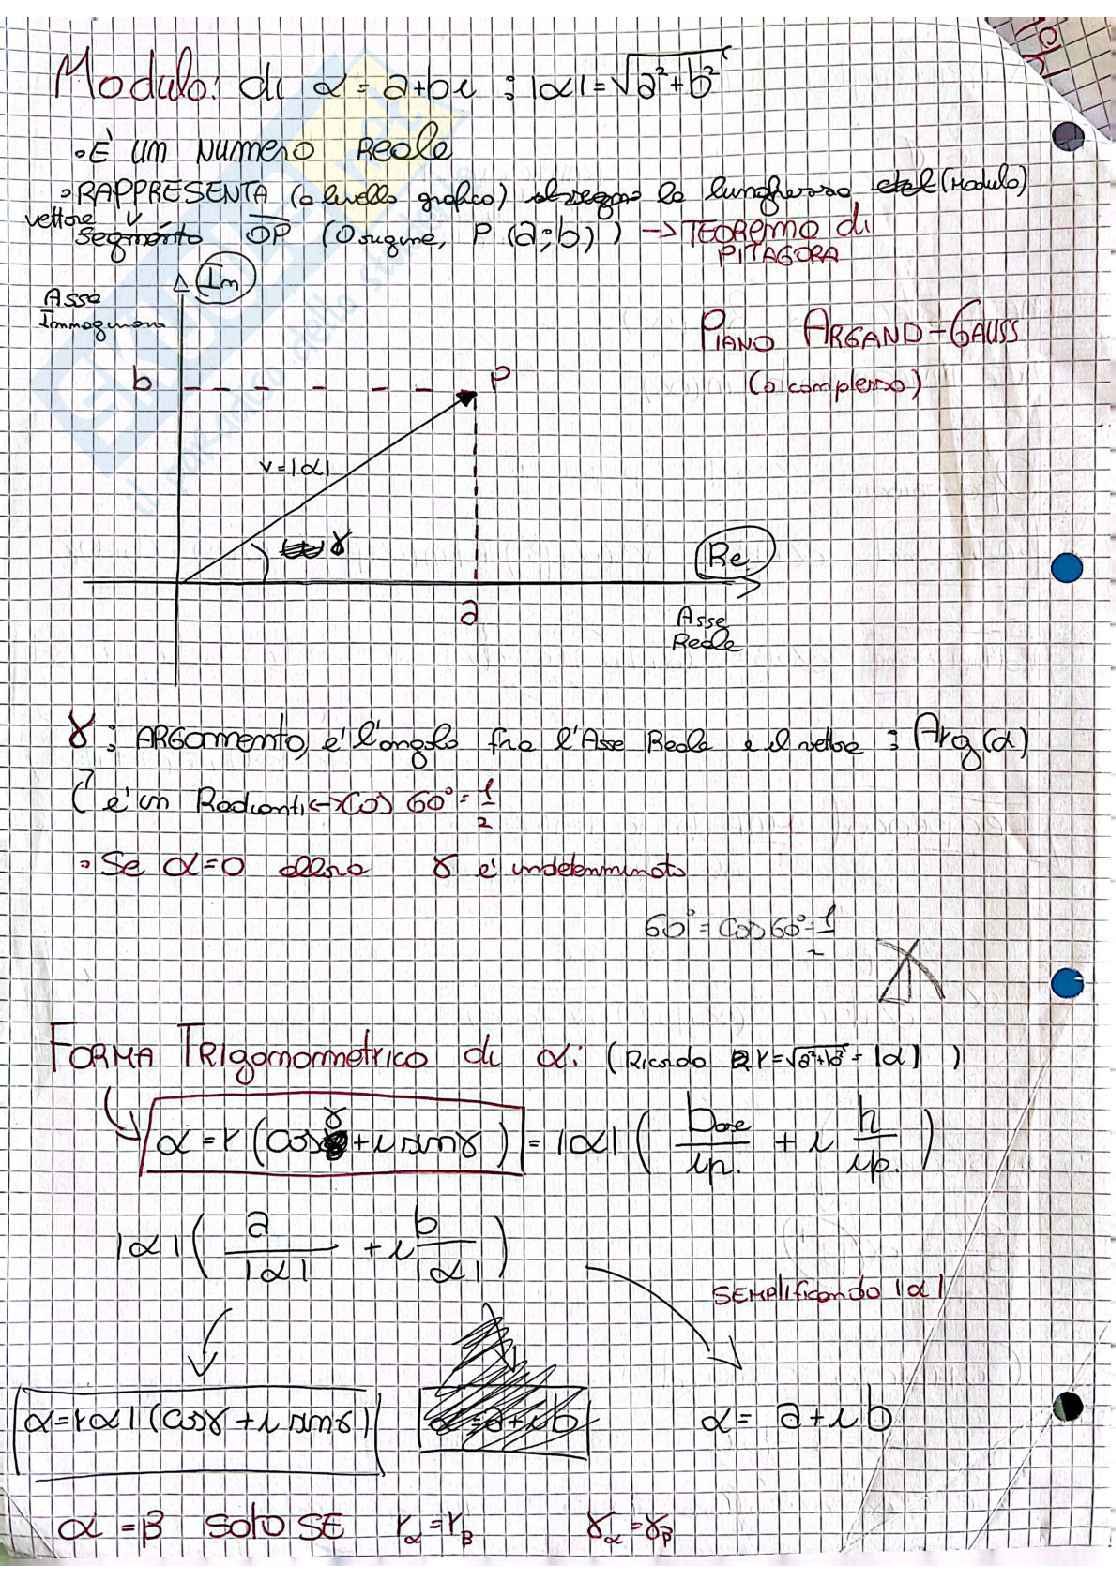 Modulo: di α = a+bi ; |α| = √a²+b²
• È un numero Reale
• RAPPRESENTA (a livello grafico) la lunghezza (Modulo)
vettore v
segmento OP (O origine, P (a;b)) → TEOREMA di
PITAGORA
Im
Asse
Immaginario
PIANO ARGAND-GAUSS
(o complesso)
b
P
v=|α|
γ
Re
a
Asse
Reale
γ : ARGOMENTO, è l'angolo fra l'Asse Reale e il vettore ; Arg(α)
è in Radianti <-> cos 60° = 1/2
• Se α=0 allora γ è indeterminato
60° = cos 60° = 1/2
FORMA TRIGONOMETRICA di α: (Ricordo r=√a²+b² = |α|)
α = r (cos γ + i sin γ) = |α| ( base/ip. + i h/ip. )
|α| ( a/|α| + i b/|α| )
SEMPLIFICANDO |α|
α = |α| (cos γ + i sin γ)
α = a+ib
α = a+ib
α = β SOLO SE r_α = r_β γ_α = γ_β